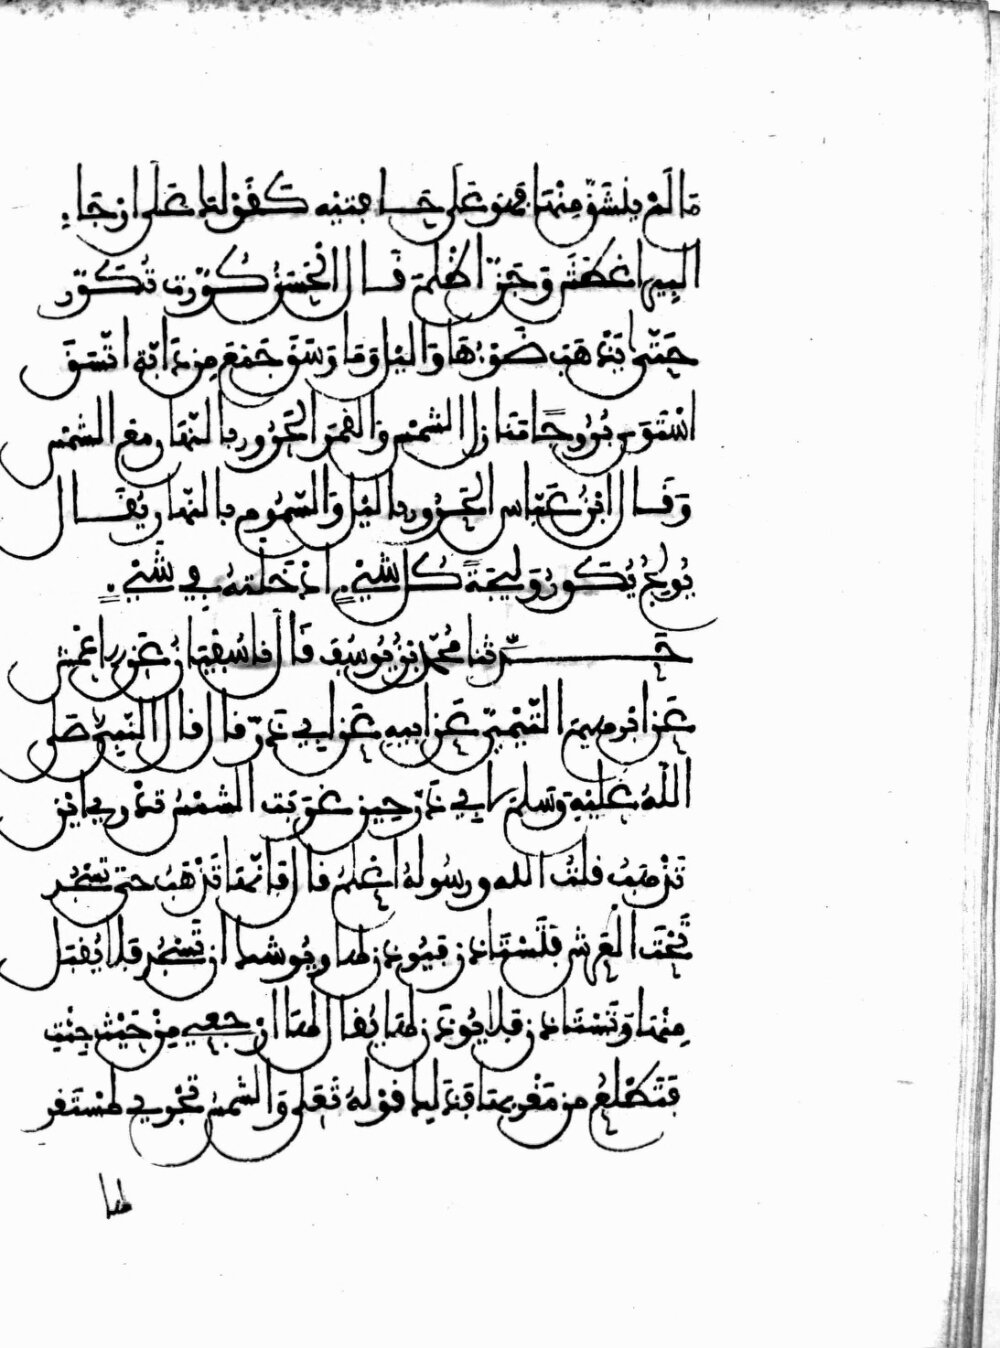 مَا لَمْ يَنْشَقَّ مِنْهَا فهو عَلَى حَافتيه كَقَوْلِكَ عَلَى ارْجَاءِ
البِيرِ اغْطَشَ وَجَنَّ اظْلَمَ قَال الْحَسَنُ كُوِّرَت تُكَوَّر
حَتَّى يَذْهَبَ ضَوْءُهَا وَاليْلِ وَمَا وَسَقَ جَمَعَ مِن دَابَّةٍ اتَّسَقَ
اسْتَوَى بُرُوجًا مَنَازِل الشمْسِ وَالقَمَرِ الحَرُور بالنَّهَار مَعَ الشمْسِ
وَقَال ابْنُ عَبَّاس الحَرُور باليْلِ وَالسَّمُوم بالنَّهَار يُقَال
يُولِجُ يُكَوِّرُ وَلِيجَةً كُل شَيْءٍ ادْخَلْتَهُ فِي شَيْءٍ
حَدَّثنا مُحمّد بْنُ يُوسُفَ قَال نا سُفْيَانُ عَنِ الاعْمَشِ
عَنِ ابْرهِيمَ التَّيْمِيِّ عَن ابِيهِ عَن ابِي ذَرّ قال قال النَّبِيُّ صَلى
اللهُ عَلَيْهِ وَسَلمَ لابِي ذَرّ حِينَ غَرَبَتِ الشمْسُ تدْرِي ايْنَ
تَذْهَبُ قلتُ الله ورسُولهُ اعْلمُ قال فانَّهَا تَذْهَبُ حتى تسْجُدَ
تَحْتَ الْعَرْشِ فَتَسْتَاذِن فيُوذن لهَا ويُوشكُ ان تَسْجُدَ فَلا يُقبَل
مِنْهَا وَتَسْتَاذِن فلا يُوذَن لهَا يُقال لهَا ارْجِعِي مِنْ حَيْث جِئْتِ
فَتَطْلعُ مِن مَغْرِبِهَا فَذَلِكَ قَوْلهُ تَعَلى وَالشمْسُ تَجْرِي لِمُسْتَقَر
لهَا